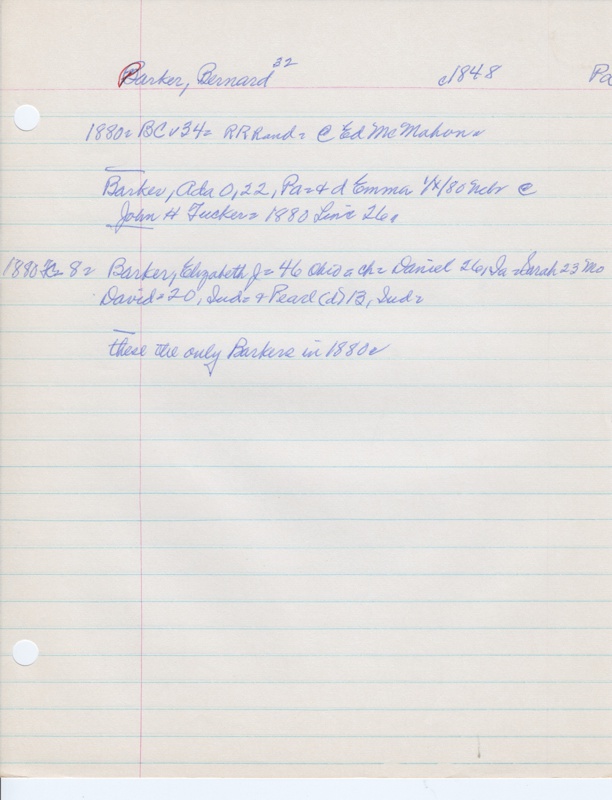 Barker, Bernard 32 c1848 Pa
1880= BC v34= RR Rand= @ Ed McMahon=
Barker, Ada O, 22, Pa= & d Emma 1/4/80 Nebr @
John H Tucker= 1880 Line 26.
1880 FC 8= Barker, Elizabeth J= 46 Ohio= ch= Daniel 26, Ia =Sarah 23 Mo
David=20, Ind= & Pearl (d) 13, Ind=
these the only Barkers in 1880=